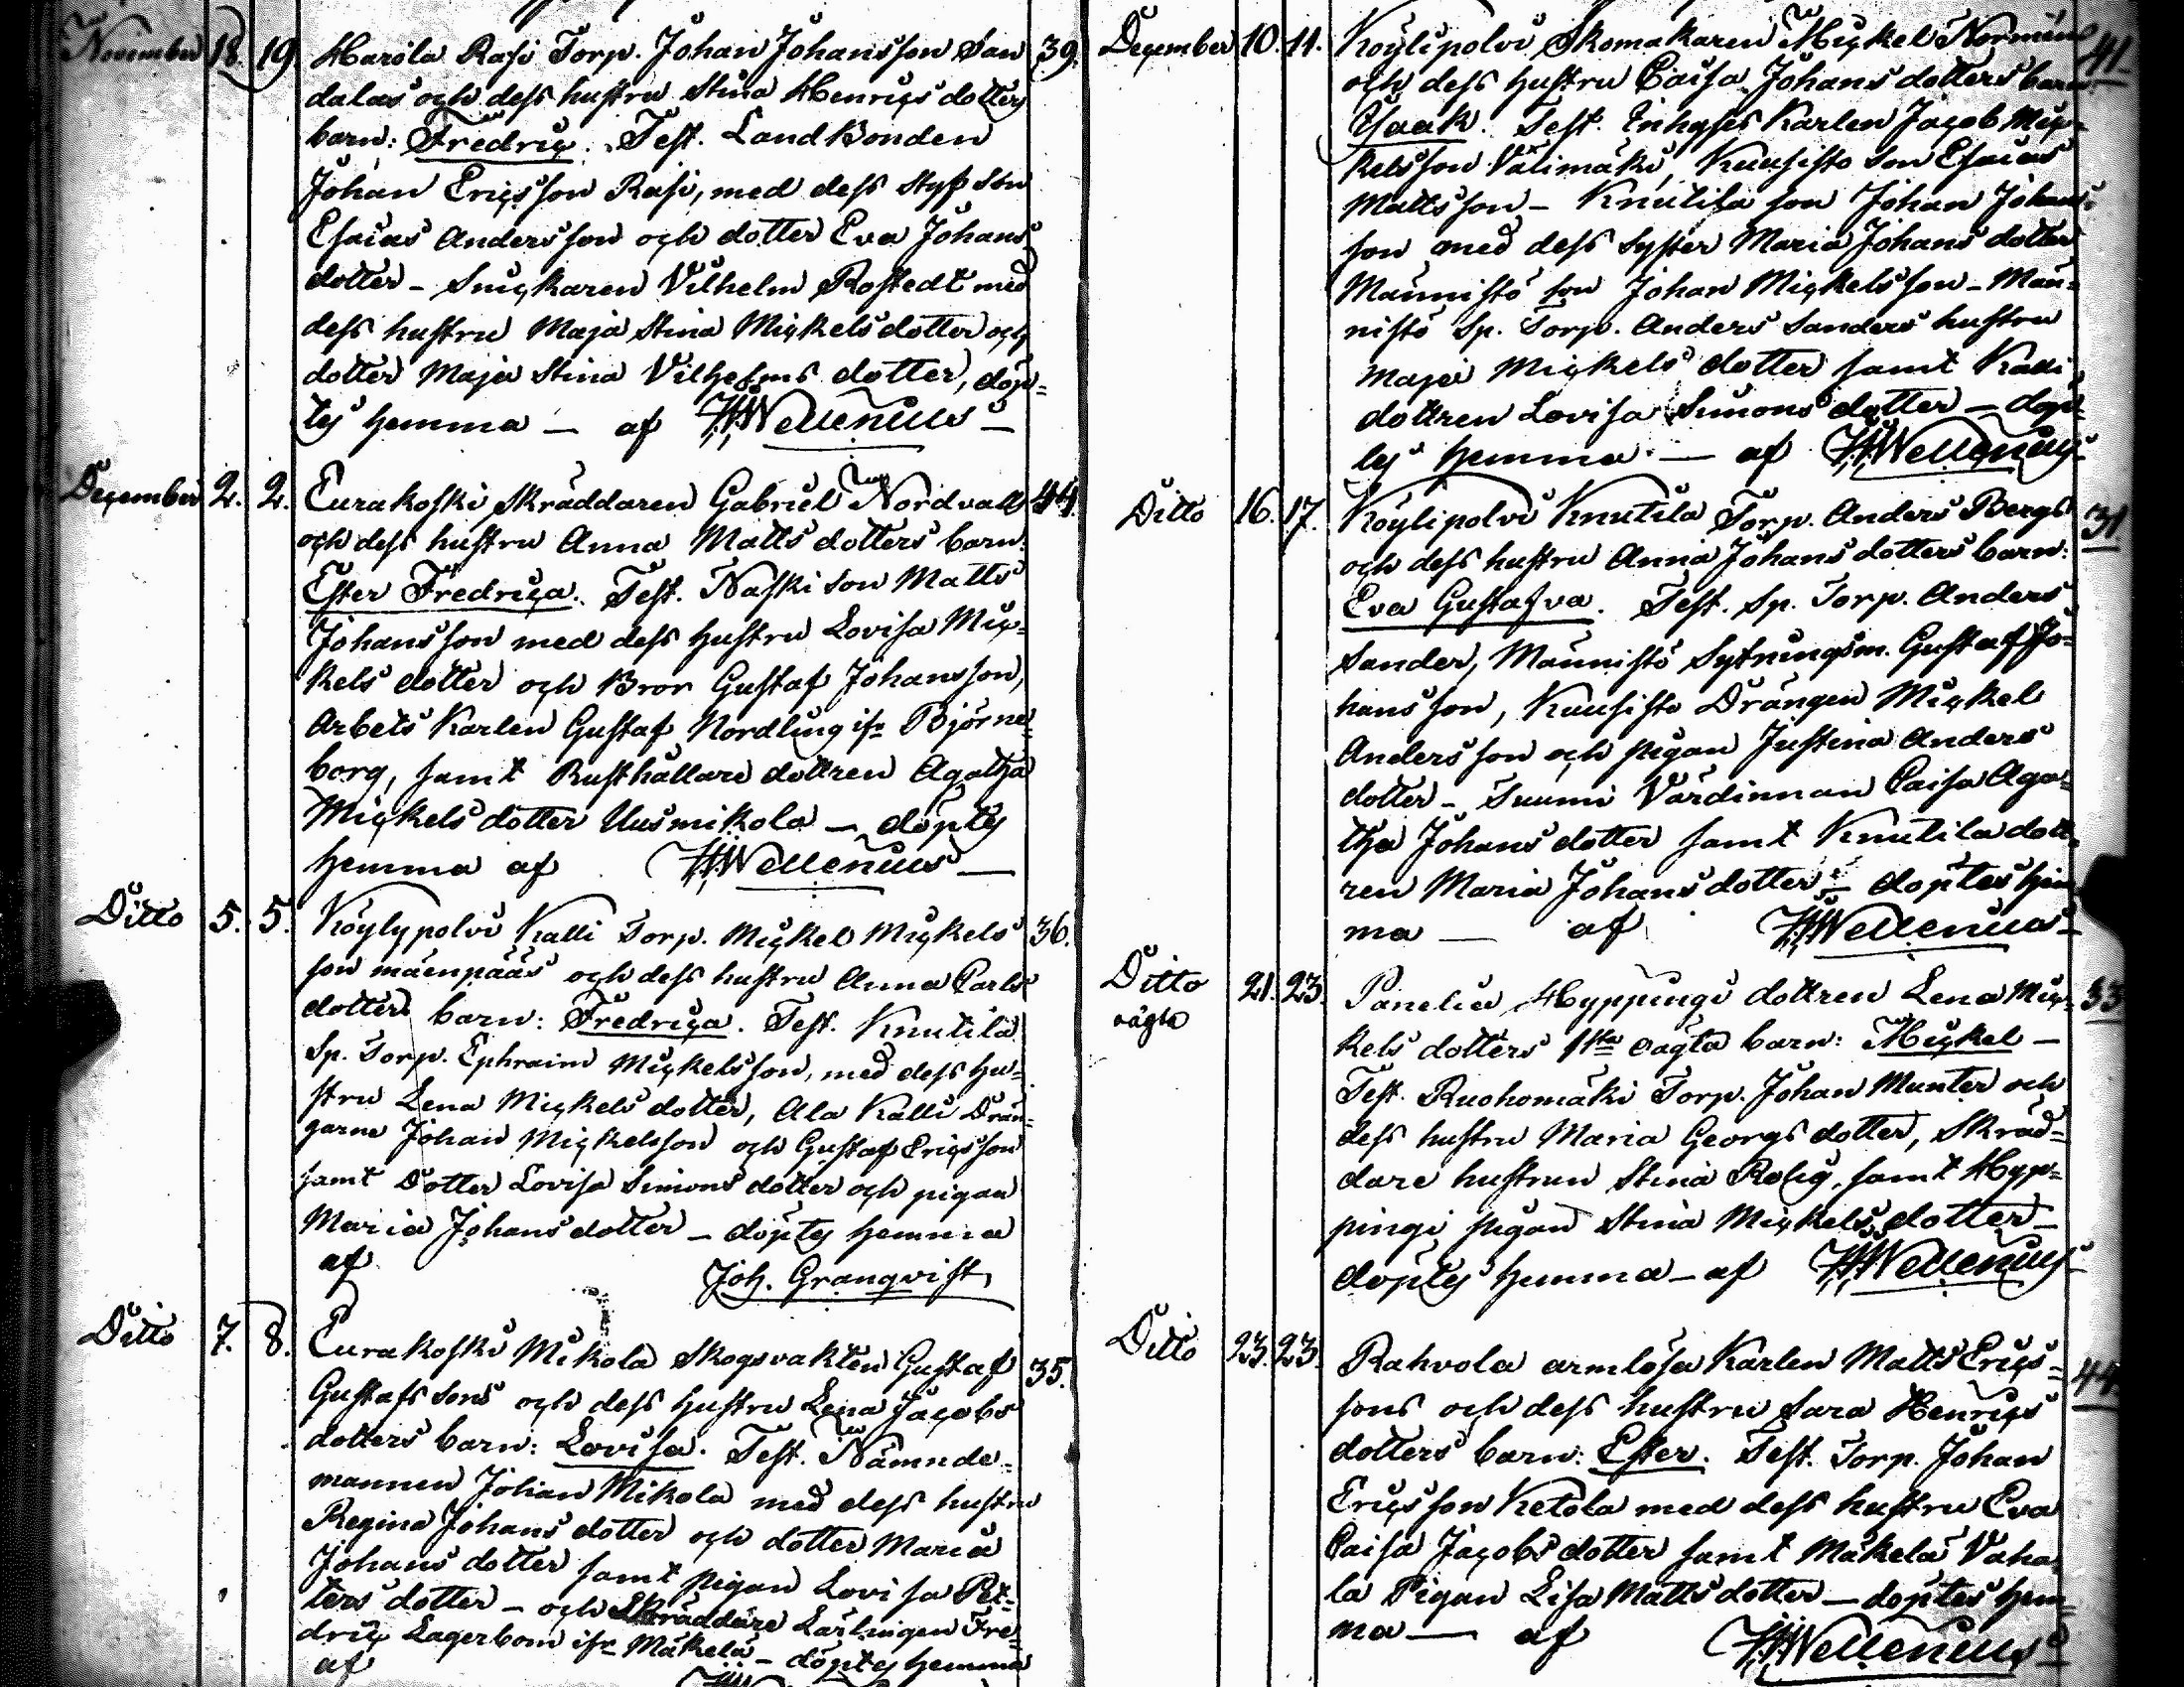 November 18. 19. Harola Rasi Torp. Johan Johansson San 39.
dalas och dess hustru Stina Henrics dotters
barn: Fredric. Test. Landbonden
Johan Ericsson Rasi, med dess Styf Son
Esaias Andersson och dotter Eva Johans
dotter – Snickaren Vilhelm Rostedt med
dess hustru Maja Stina Mickels dotter och
dotter Maja Stina Vilhelms dotter, döp=
tes hemma – af HHWellenius –
December 2. 2. Eurakoski Skräddaren Gabriel Nordvalls 44.
och dess hustru Anna Matts dotters barn:
Ester Fredrica. Test. Naski Son Matts
Johansson med dess hustru Lovisa Mic=
kels dotter och Bror Gustaf Johansson,
Arbets Karlen Gustaf Nordling ifr. Björne
borg, samt Rusthållare dottren Agatha
Mickels dotter Uusmikola – döptes
hemma af HHWellenius –
Ditto 5. 5. Köylypolvi Kalli Torp. Mickel Mickels 36.
son mäenpääs och dess hustru Anna Carls
dotters barn: Fredrica. Test. Knutila
Sp. Torp. Ephraim Mickelsson, med dess hu=
stru Lena Mickels dotter, Ala Kalli Drän=
garne Johan Mickelsson och Gustaf Ericsson
samt Dotter Lovisa Simons dotter och pigan
Maria Johans dotter – döptes hemma
af Joh. Granqvist
Ditto 7. 8. Eurakoski Mikola Skogsvakten Gustaf 35.
Gustafs Sons och dess hustru Lena Jacobs
dotters barn: Lovisa. Test. Nämnde=
mannen Johan Mikola med dess hustru
Regina Johans dotter och dotter Maria
Johans dotter samt pigan Lovisa Pet=
ters dotter – och Skräddare Lärlingen Fre=
dric Lagerbom ifr. Mäkelä – döptes hemma
af
December 10. 11. Köylipolvi Skomakaren Mickel Normäns 41.
och dess hustru Caisa Johans dotters barn
Esaak. Test. Inhyses Karlen Jacob Mic=
kelsson Välimäki, Kuusisto Son Esaias
Mattsson – Knutila son Johan Johans=
son med dess syster Maria Johans dotter
Männistö son Johan Mickelsson – Män=
nistö Sp. Torp. Anders Sanders hustru
Maja Mickels dotter samt Kalli
dottren Lovisa Simons dotter – döp=
tes hemma – af HHWellenius
Ditto 16. 17. Köylipolvi Knutila Torp. Anders Bergs 31.
och dess hustru Anna Johans dotters barn:
Eva Gustafva. Test. Sp. Torp. Anders
Sander, Männistö Sytningsm. Gustaf Jo=
hansson, Kuusisto Drängen Mickel
Andersson och pigan Justina Anders
dotter – Suumi Värdinnan Caisa Aga=
tha Johans dotter samt Knutila dott=
ren Maria Johans dotter – döptes hem
ma – af HHWellenius
Ditto 21. 23. Panelia Hyppingi dottren Lena Mic= 33
oägta kels dotters 1sta oägta barn: Mickel –
Test. Ruohomäki Torp. Johan Munter och
dess hustru Maria Georgs dotter, Skräd=
dare hustrun Stina Rolig, samt Hyp=
pingi pigan Stina Mickels dotter –
döptes hemma – af HHWellenius
Ditto 23. 23. Rahvola armlösa Karlen Matts Erics= 44.
sons och dess hustru Sara Henrics
dotters barn: Ester. Test. Torp. Johan
Ericsson Ketola med dess hustru Eva
Caisa Jacobs dotter samt Mäkelä Vaha
la Pigan Lisa Matts dotter – döptes hem=
ma – af HHWellenius